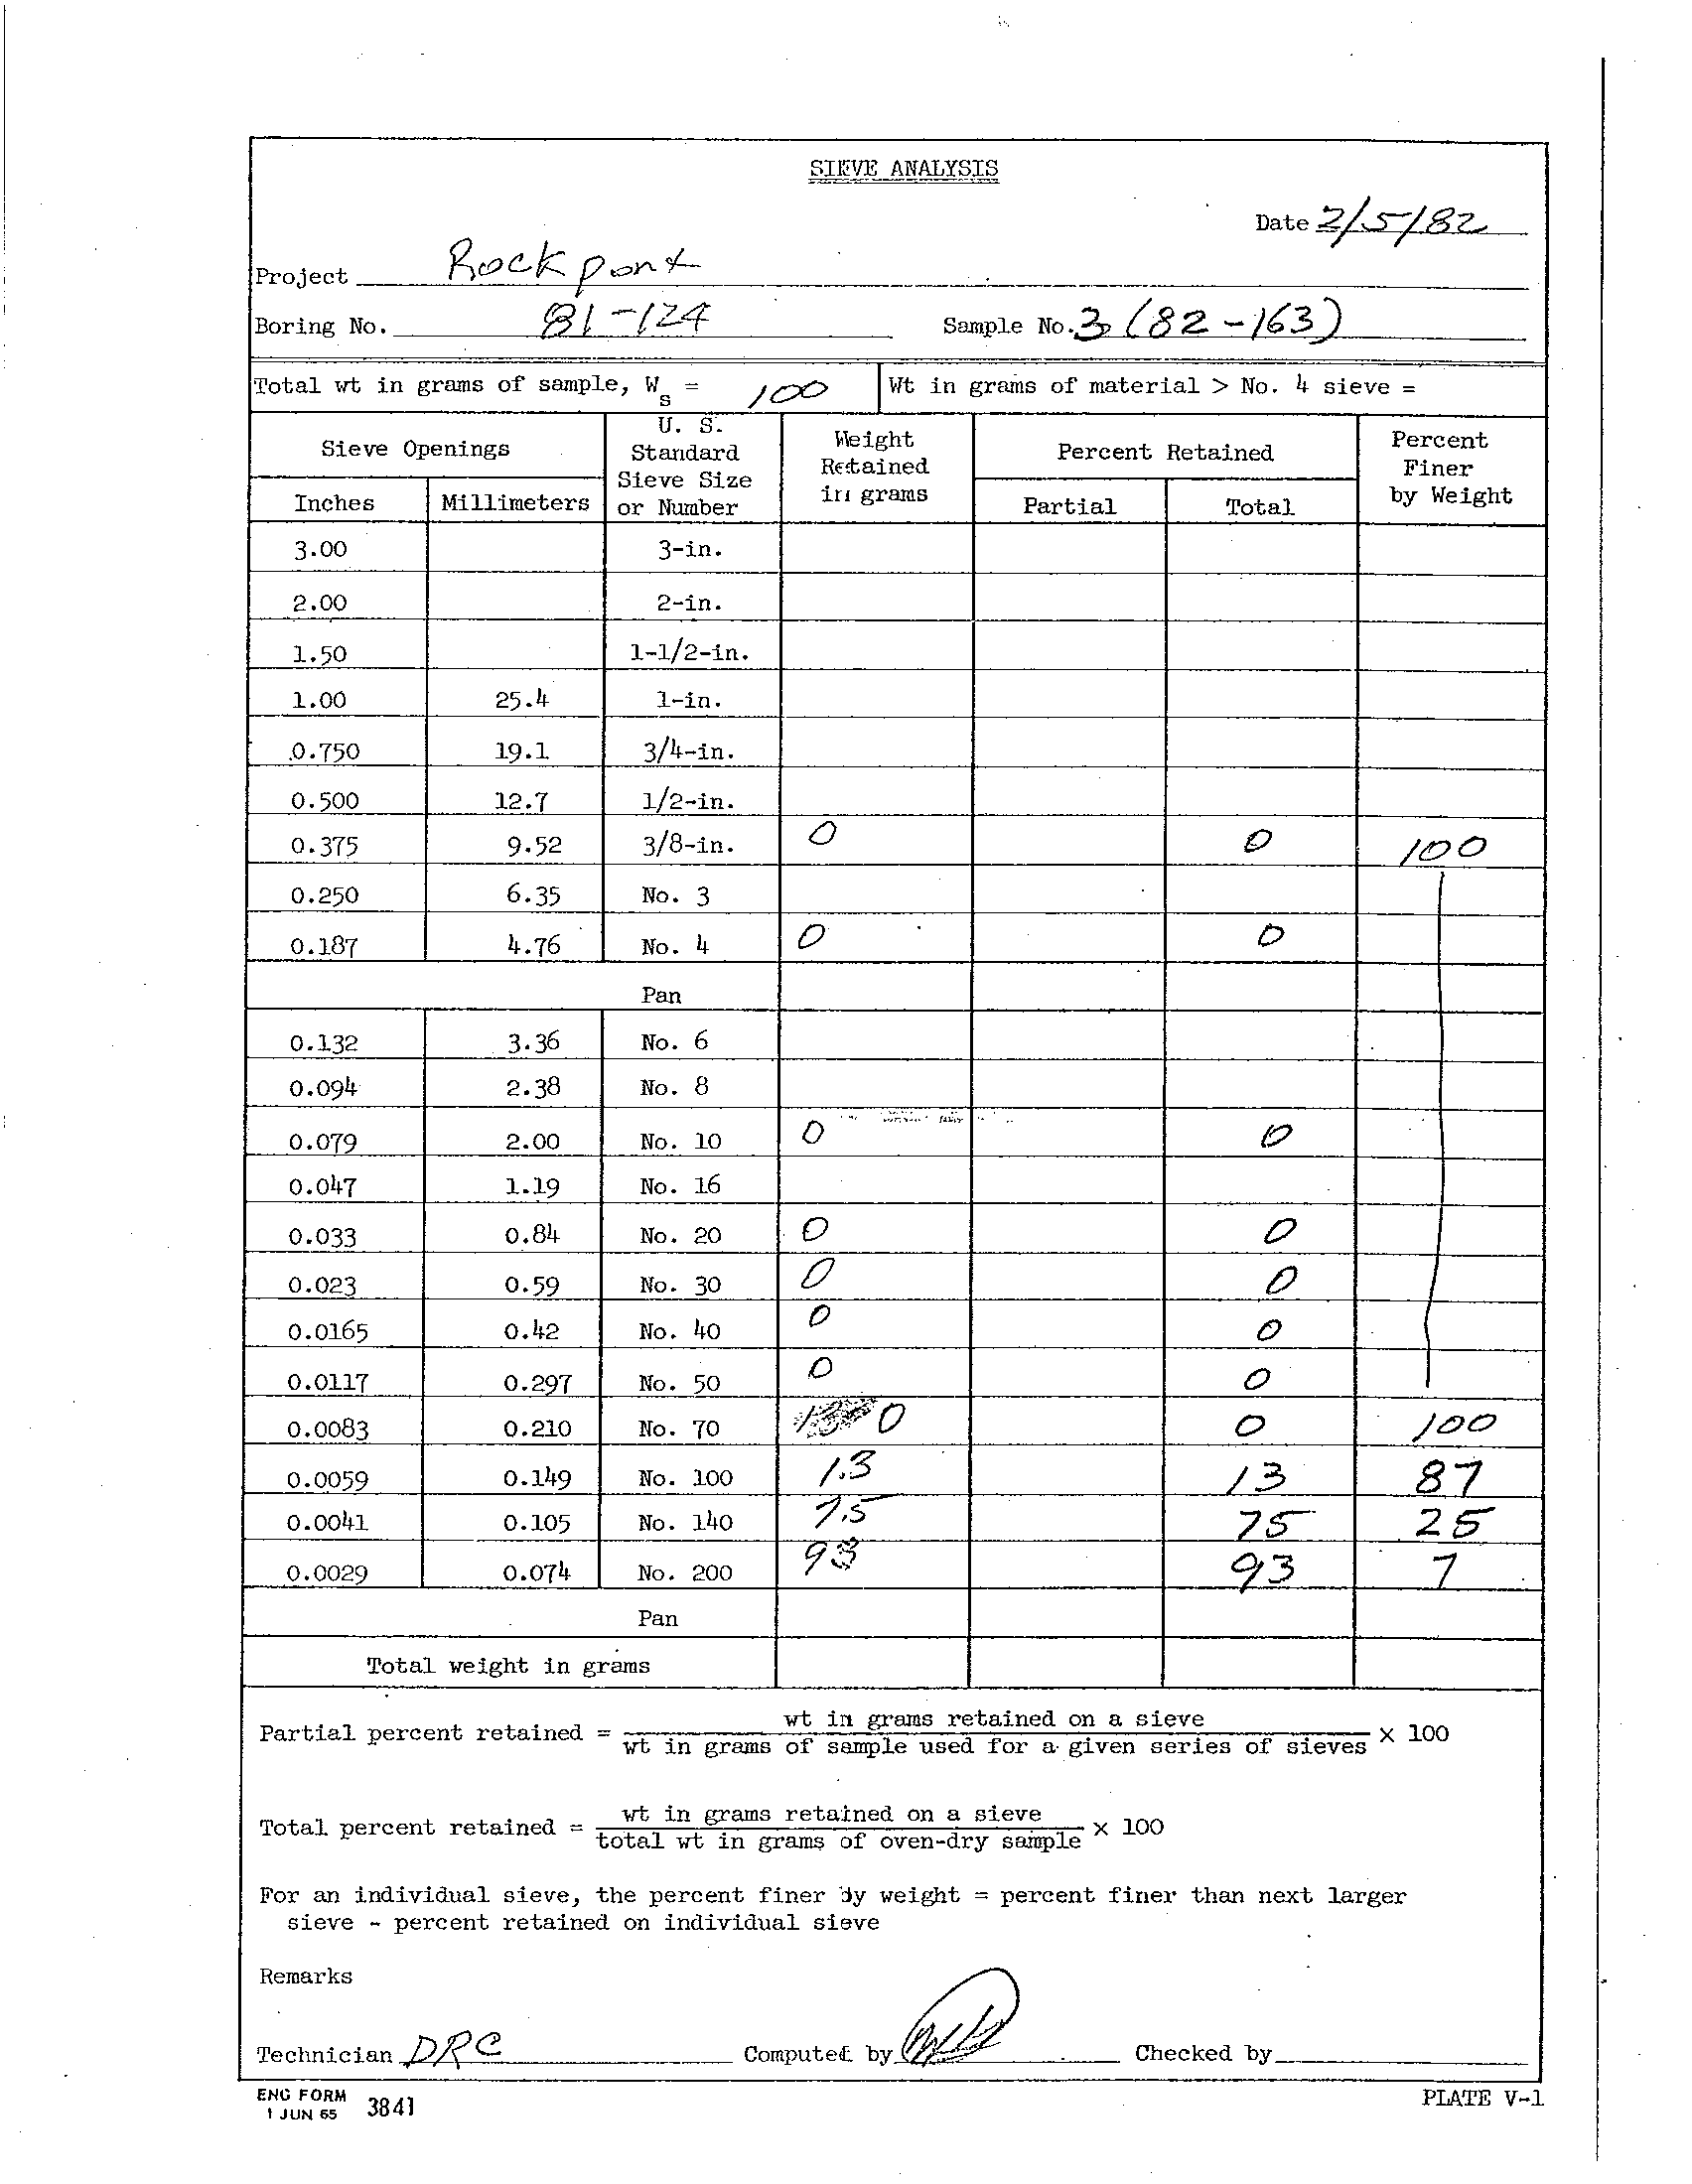 SIEVE ANALYSIS
Date 2/5/82
Project Rockpont
Boring No. 81-124 Sample No. 3 (82-163)
Total wt in grams of sample, Ws = 100 Wt in grams of material > No. 4 sieve =
Sieve Openings U. S. Standard Sieve Size or Number Weight Retained in grams Percent Retained Percent Finer by Weight
Inches Millimeters Partial Total
3.00 3-in.
2.00 2-in.
1.50 1-1/2-in.
1.00 25.4 1-in.
0.750 19.1 3/4-in.
0.500 12.7 1/2-in.
0.375 9.52 3/8-in. 0 0 100
0.250 6.35 No. 3
0.187 4.76 No. 4 0 0
Pan
0.132 3.36 No. 6
0.094 2.38 No. 8
0.079 2.00 No. 10 0 0
0.047 1.19 No. 16
0.033 0.84 No. 20 0 0
0.023 0.59 No. 30 0 0
0.0165 0.42 No. 40 0 0
0.0117 0.297 No. 50 0 0
0.0083 0.210 No. 70 0 0 100
0.0059 0.149 No. 100 1.3 13 87
0.0041 0.105 No. 140 7.5 75 25
0.0029 0.074 No. 200 93 93 7
Pan
Total weight in grams
Partial percent retained = wt in grams retained on a sieve / wt in grams of sample used for a given series of sieves × 100
Total percent retained = wt in grams retained on a sieve / total wt in grams of oven-dry sample × 100
For an individual sieve, the percent finer by weight = percent finer than next larger
sieve - percent retained on individual sieve
Remarks
Technician DRC Computed by Checked by
ENG FORM 3841 PLATE V-1
1 JUN 65